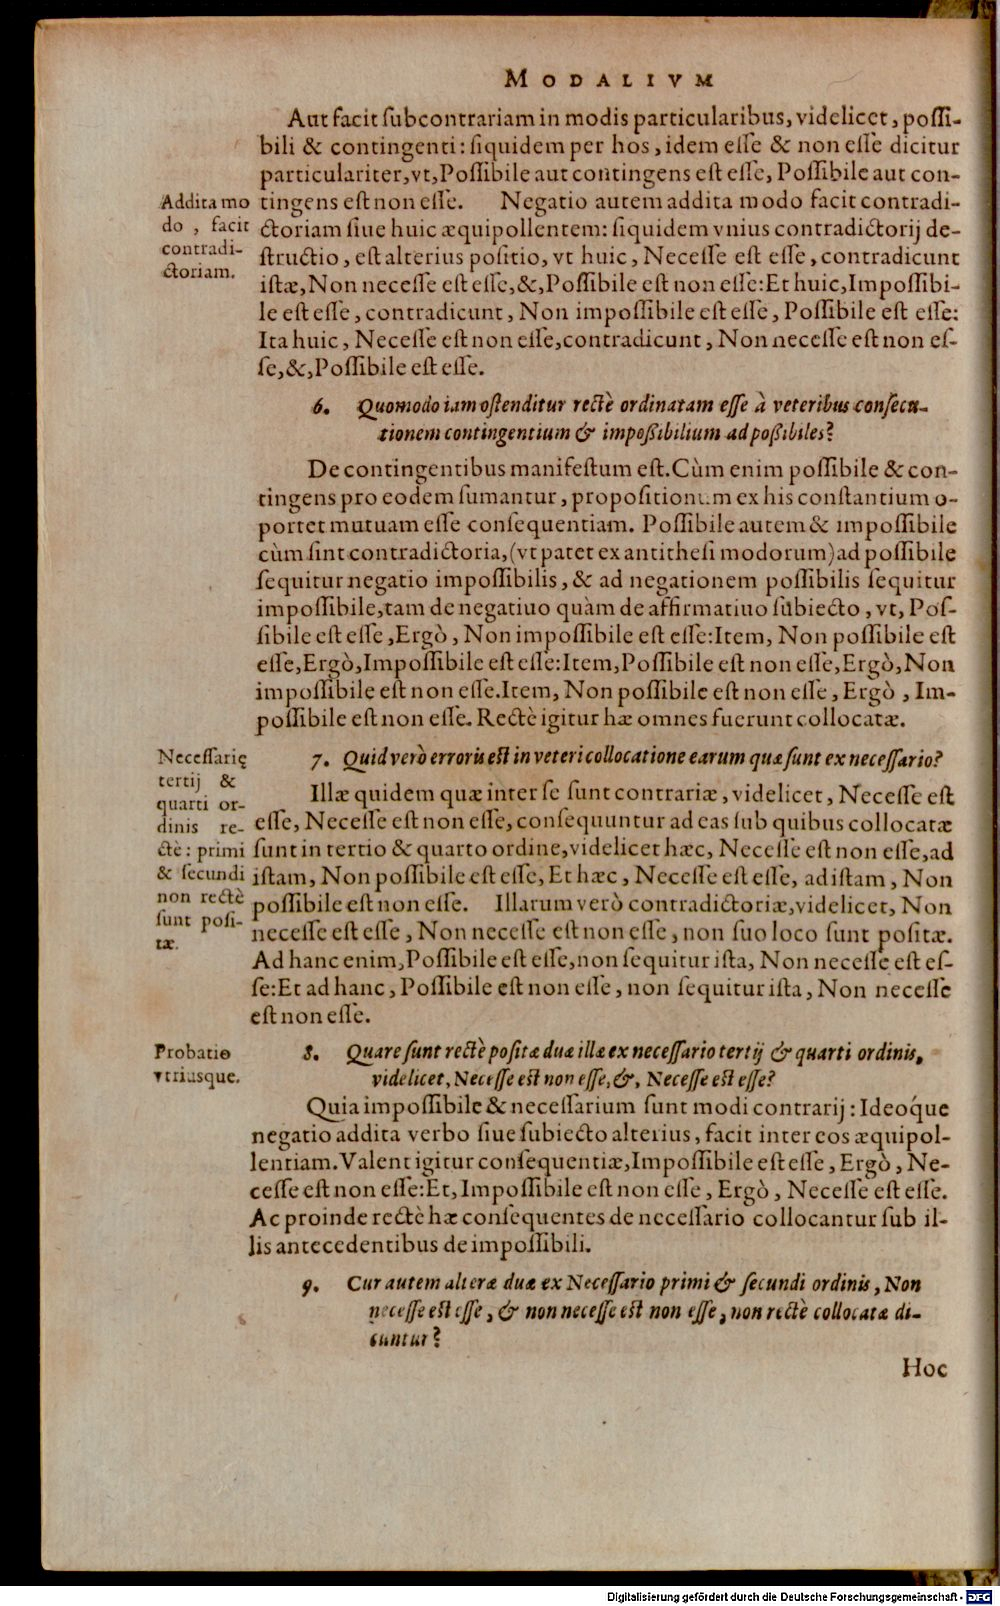 MODALIVM
Aut facit subcontrariam in modis particularibus, videlicet, possi-
bili & contingenti: siquidem per hos, idem esse & non esse dicitur
particulariter, vt, Possibile aut contingens est esse, Possibile aut con-
tingens est non esse. Negatio autem addita modo facit contradi-
ctoriam siue huic æquipollentem: siquidem vnius contradictorij de-
structio, est alterius positio, vt huic, Necesse est esse, contradicunt
istæ, Non necesse est esse, &, Possibile est non esse: Et huic, Impossibi-
le est esse, contradicunt, Non impossibile est esse, Possibile est esse:
Ita huic, Necesse est non esse, contradicunt, Non necesse est non es-
se, &, Possibile est esse.
Addita mo
do, facit
contradi-
ctoriam.
6. Quomodo iam ostenditur rectè ordinatam esse à veteribus consecu-
tionem contingentium & impossibilium ad possibiles?
De contingentibus manifestum est. Cùm enim possibile & con-
tingens pro eodem sumantur, propositionum ex his constantium o-
portet mutuam esse consequentiam. Possibile autem & impossibile
cùm sint contradictoria, (vt patet ex antithesi modorum) ad possibile
sequitur negatio impossibilis, & ad negationem possibilis sequitur
impossibile, tam de negatiuo quàm de affirmatiuo subiecto, vt, Pos-
sibile est esse, Ergò, Non impossibile est esse: Item, Non possibile est
esse, Ergò, Impossibile est esse: Item, Possibile est non esse, Ergò, Non
impossibile est non esse. Item, Non possibile est non esse, Ergò, Im-
possibile est non esse. Rectè igitur hæ omnes fuerunt collocatæ.
7. Quid verò erroris est in veteri collocatione earum quæ sunt ex necessario?
Illæ quidem quæ inter se sunt contrariæ, videlicet, Necesse est
esse, Necesse est non esse, consequuntur ad eas sub quibus collocatæ
sunt in tertio & quarto ordine, videlicet hæc, Necesse est non esse, ad
istam, Non possibile est esse, Et hæc, Necesse est esse, ad istam, Non
possibile est non esse. Illarum verò contradictoriæ, videlicet, Non
necesse est esse, Non necesse est non esse, non suo loco sunt positæ.
Ad hanc enim, Possibile est esse, non sequitur ista, Non necesse est es-
se: Et ad hanc, Possibile est non esse, non sequitur ista, Non necesse
est non esse.
Necessarię
tertij &
quarti or-
dinis re-
ctè: primi
& secundi
non rectè
sunt posi-
tæ.
8. Quare sunt rectè positæ duæ illæ ex necessario tertij & quarti ordinis,
videlicet, Necesse est non esse, &, Necesse est esse?
Probatio
vtriusque.
Quia impossibile & necessarium sunt modi contrarij: Ideóque
negatio addita verbo siue subiecto alterius, facit inter eos æquipol-
lentiam. Valent igitur consequentiæ, Impossibile est esse, Ergò, Ne-
cesse est non esse: Et, Impossibile est non esse, Ergò, Necesse est esse.
Ac proinde rectè hæ consequentes de necessario collocantur sub il-
lis antecedentibus de impossibili.
9. Cur autem alteræ duæ ex Necessario primi & secundi ordinis, Non
necesse est esse, & non necesse est non esse, non rectè collocatæ di-
cuntur?
Hoc
Digitalisierung gefördert durch die Deutsche Forschungsgemeinschaft - DFG